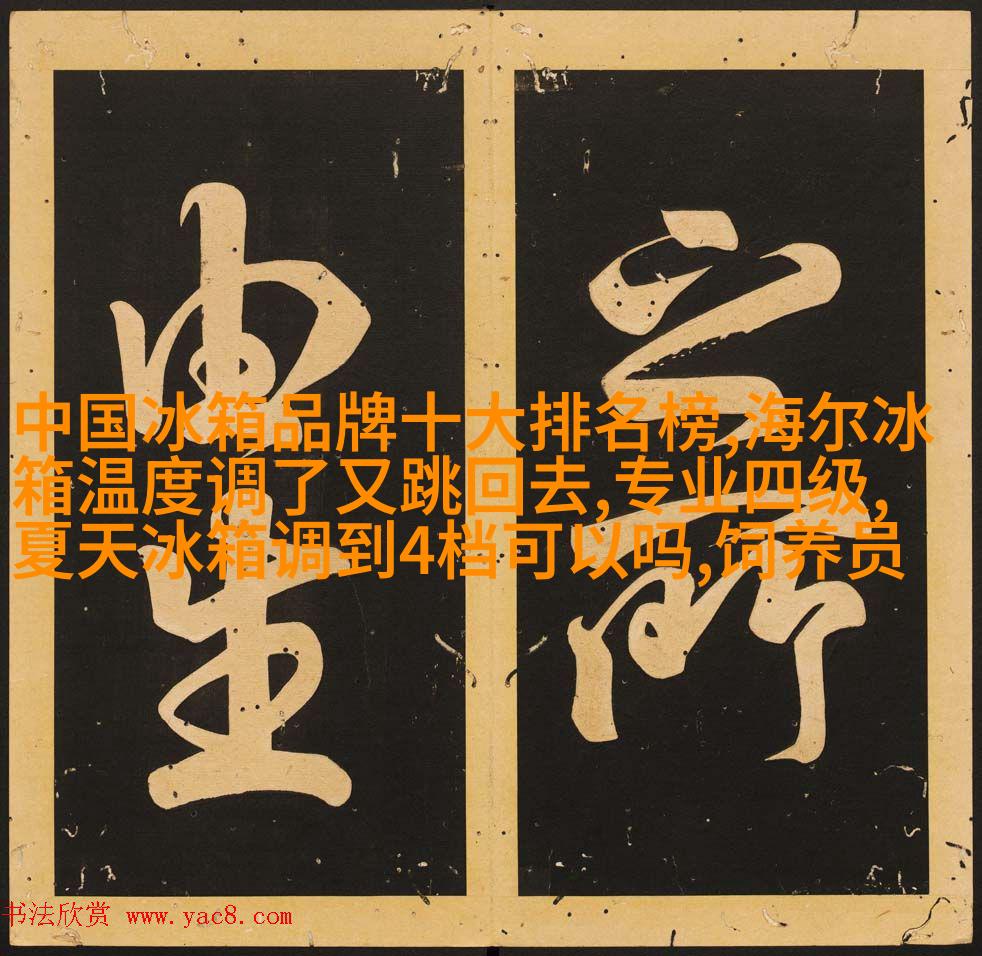 之所
由生
中国冰箱品牌十大排名榜,海尔冰
箱温度调了又跳回去,专业四级,
夏天冰箱调到4档可以吗,饲养员
书法欣赏 www.yac8.com